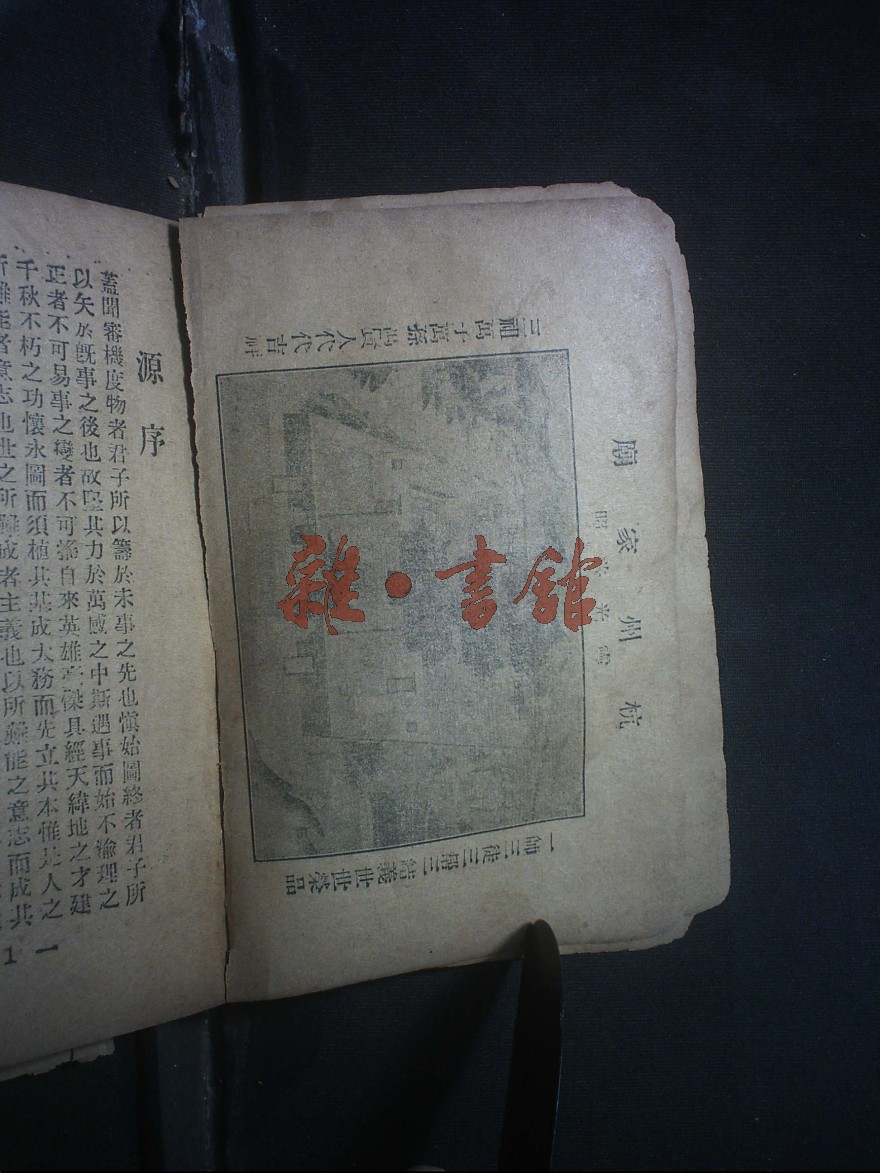 杭州家廟
人代代吉祥
世世榮品
雜·書館
源序
蓋聞審機度物者君子所以籌於未事之先也愼始圖終者君子所
以矢於旣事之後也故其力於萬感之中斯遇事而始不渝理之
正者不可易事之變者不可搖自來英雄豪傑具經天緯地之才建
千秋不朽之功懷永圖而須植其基成大務而先立其本惟是人之
所難能者意志也世之所難成者主義也以所難能之意志而成其
一
1